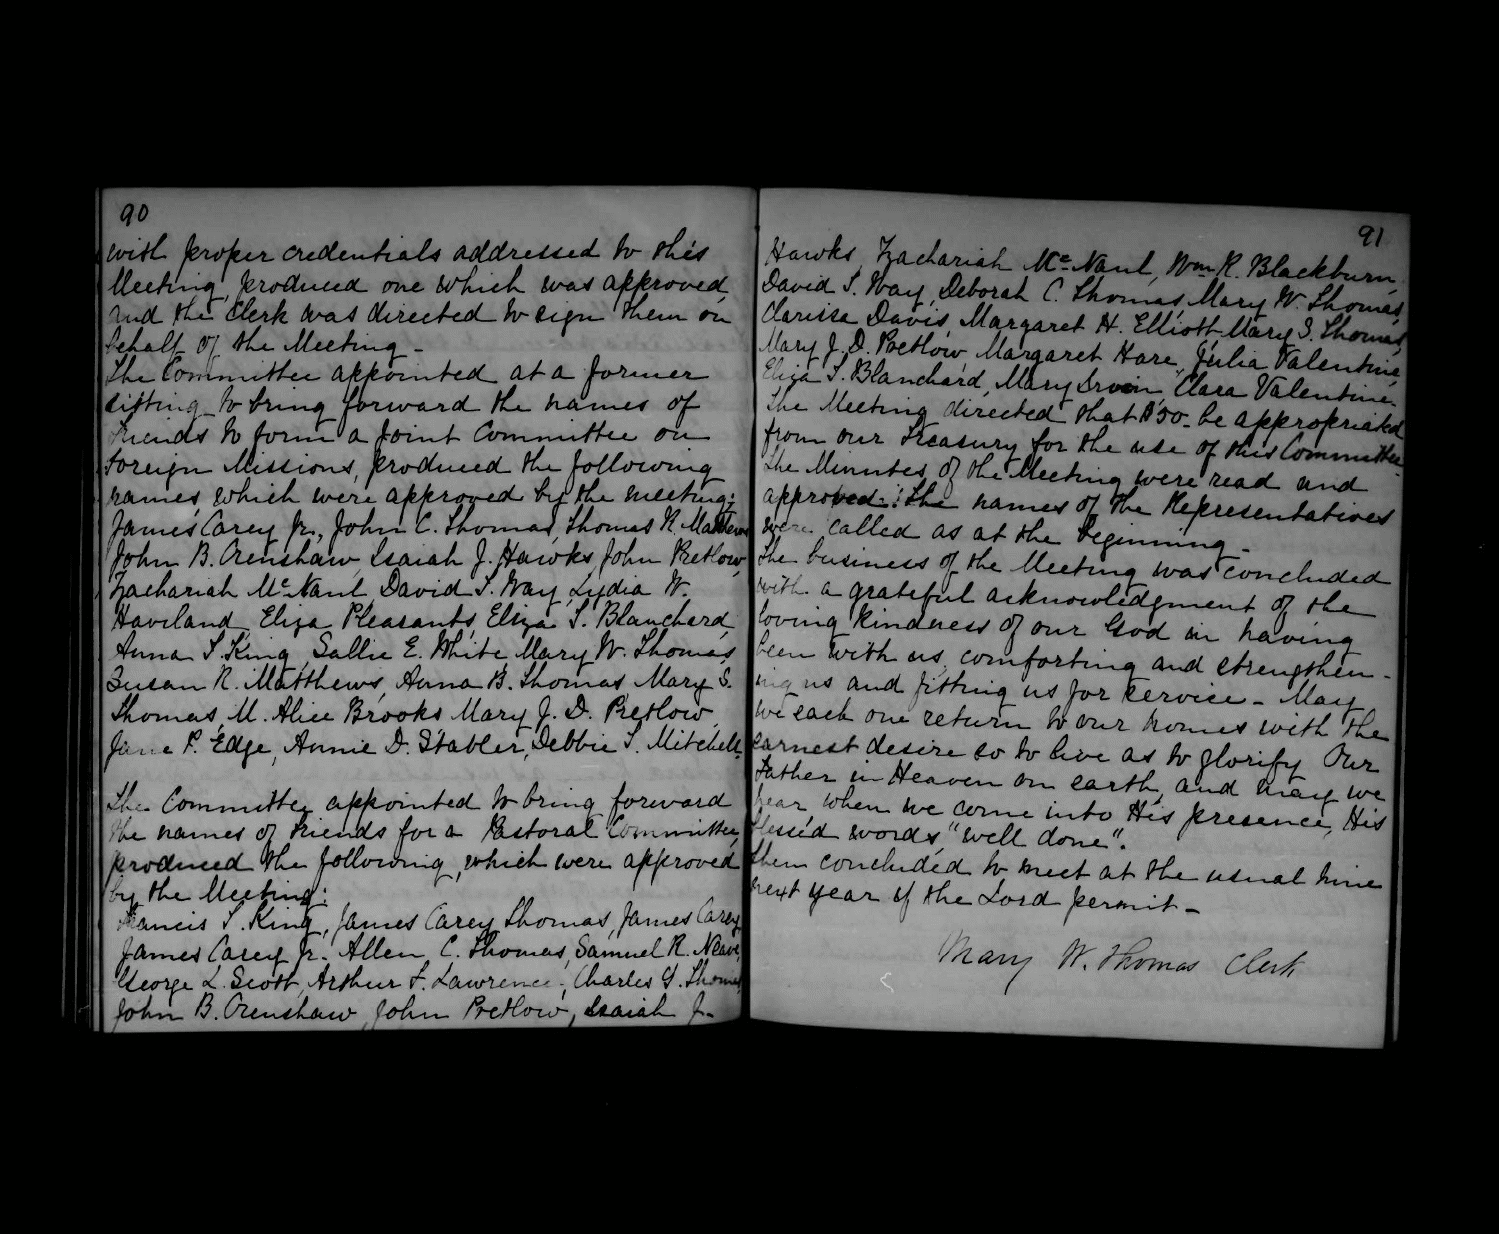 90
with proper credentials addressed to this
Meeting, produced one which was approved,
and the Clerk was directed to sign them on
behalf of the Meeting -
The Committee appointed at a former
sitting to bring forward the names of
Friends to form a Joint Committee on
Foreign Missions, produced the following
names, which were approved by the meeting:
James Carey Jr., John C. Thomas, Thomas R. Matthews
John B. Crenshaw, Isaiah J. Hawks, John Pretlow,
Zachariah Mc Naul, David S. Way, Lydia W.
Haviland, Eliza Pleasants, Eliza S. Blanchard,
Anna T. King, Sallie E. White, Mary W. Thomas,
Susan R. Matthews, Anna B. Thomas, Mary S.
Thomas, M. Alice Brooks, Mary J. D. Pretlow,
Jane P. Edge, Annie D. Stabler, Debbie S. Mitchell.
The Committee appointed to bring forward
the names of Friends for a Pastoral Committee,
produced the following, which were approved
by the Meeting:
Francis T. King, James Carey Thomas, James Carey
James Carey Jr. Allen C. Thomas, Samuel R. Neave,
George L. Scott, Arthur F. Lawrence, Charles Y. Thomas,
John B. Crenshaw, John Pretlow, Isaiah J.
91
Hawks, Zachariah Mc Naul, Wm R. Blackburn,
David S. Way, Deborah C. Thomas, Mary W. Thomas,
Clarissa Davis, Margaret H. Elliott, Mary S. Thomas,
Mary J. D. Pretlow, Margaret Hare, Julia Valentine,
Eliza S. Blanchard, Mary Irwin, Clara Valentine.
The Meeting directed that $50- be appropriated
from our Treasury for the use of this Committee -
The Minutes of the Meeting were read and
approved. The names of the Representatives
were called as at the beginning -
The business of the Meeting was concluded
with a grateful acknowledgment of the
loving kindness of our God in having
been with us, comforting and strengthen-
ing us and fitting us for service - May
we each one return to our homes with the
earnest desire so to live as to glorify Our
Father in Heaven on earth, and may we
hear when we come into His presence, His
blessed words, "well done".
Then concluded to meet at the usual time
next year if the Lord permit -
Mary W. Thomas Clerk